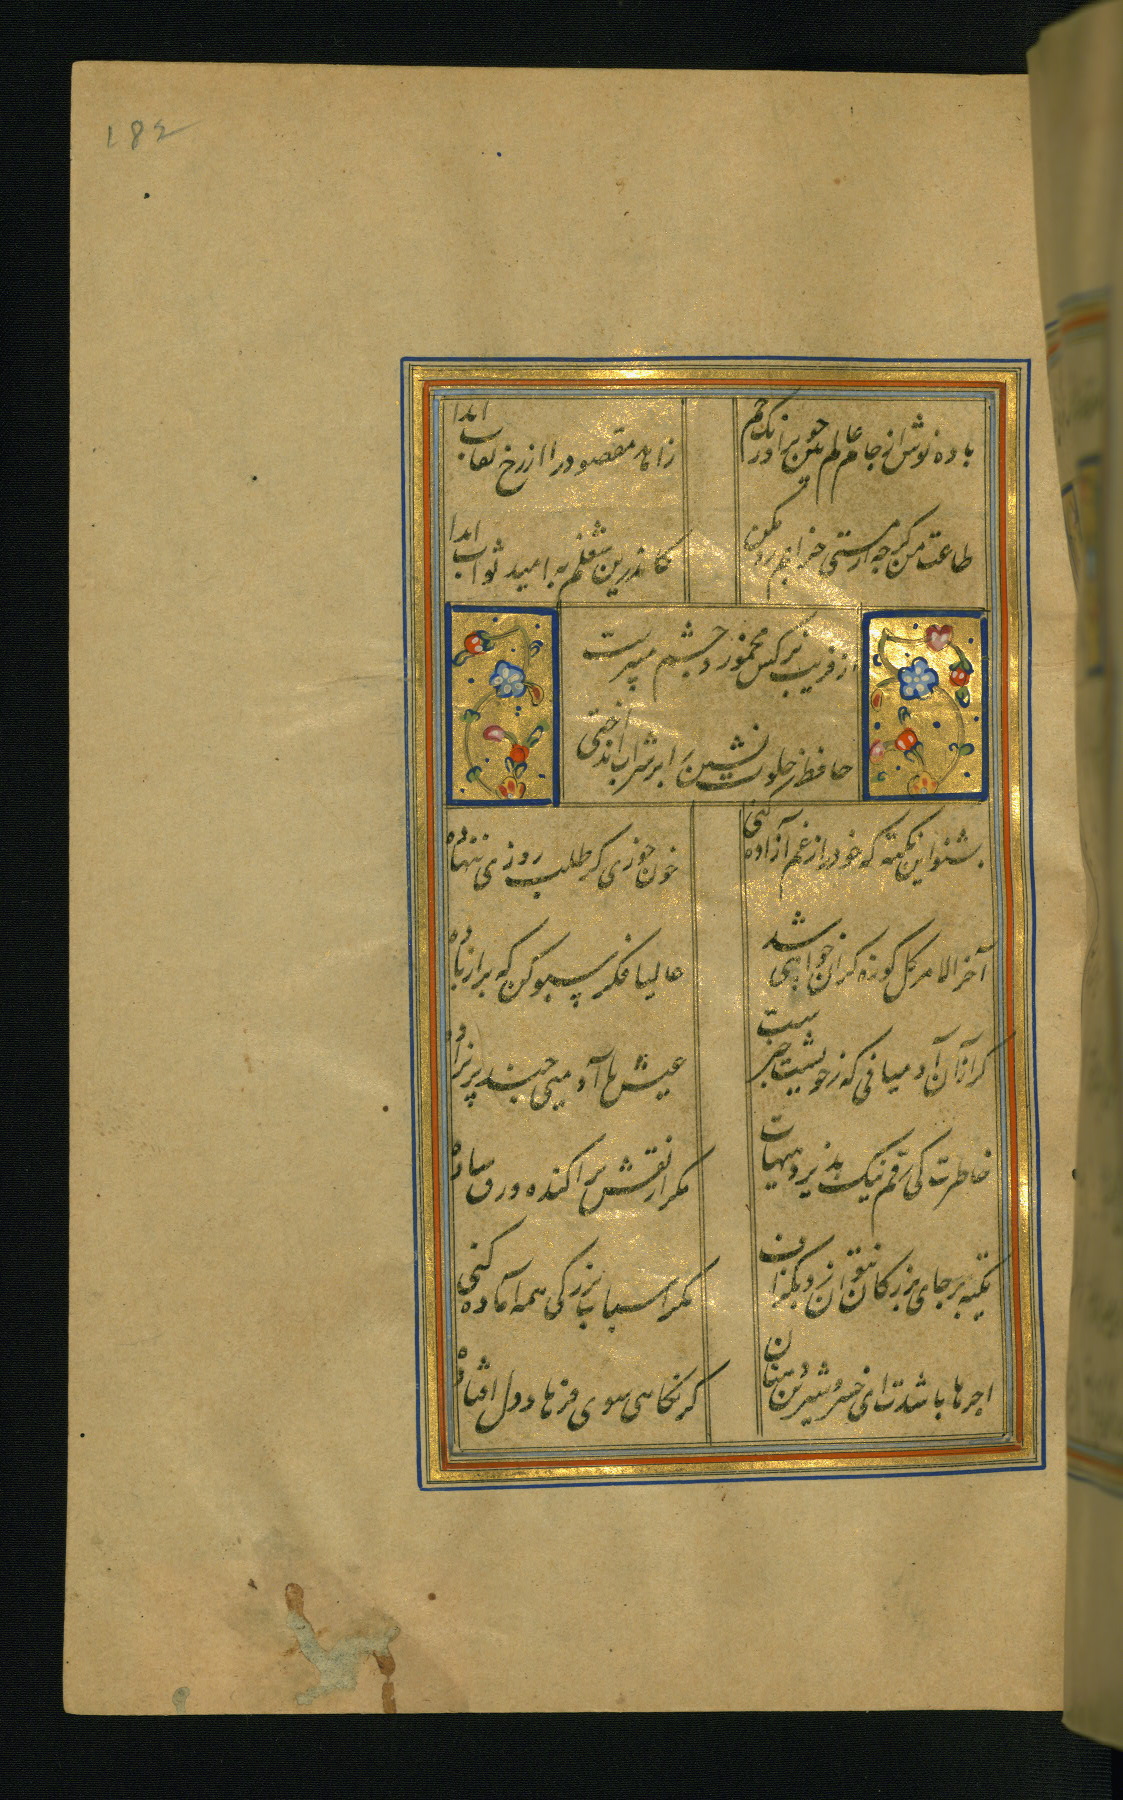 182
باده نوش از جام عالم بین که بر اورنگ جم
زاهد مقصود را از رخ نقاب انداختی
طاعت من گرچه از مستی خرابم رد مکن
کاندرین شغلم به امید ثواب اندا
از فریب نرگس مخمور و چشم می پرست
حافظ خلوت نشین را بر شراب انداختی
بشنو این نکته که خود را ز غم آزاده کنی
خون خوری گر طلب روزی ننهاده
آخر الامر گل کوزه گران خواهی شد
حالیا فکر سبو کن که پر از باده
گر از آن آدمیانی که بهشتت
عیش با آدمیی چند پریزاده
خاطرت کی رقم فیض پذیرد هیهات
مگر از نقش پراکنده ورق ساده
تکیه بر جای بزرگان نتوان زد بگزاف
مگر اسباب بزرگی همه آماده کنی
اجرها باشدت ای خسرو شیرین دهنان
گر نگاهی سوی فرهاد دل افتاده